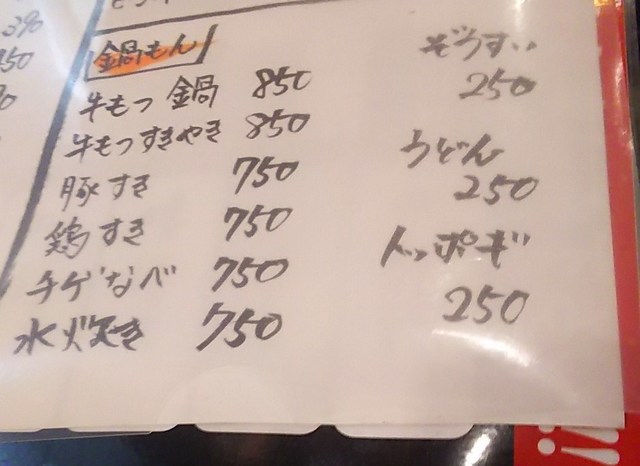 390
鍋もん
牛もつ鍋 850
牛もつすきやき 850
豚すき 750
鶏すき 750
チゲなべ 750
水炊き 750
ぞうすい
250
うどん
250
トッポギ
250
!!